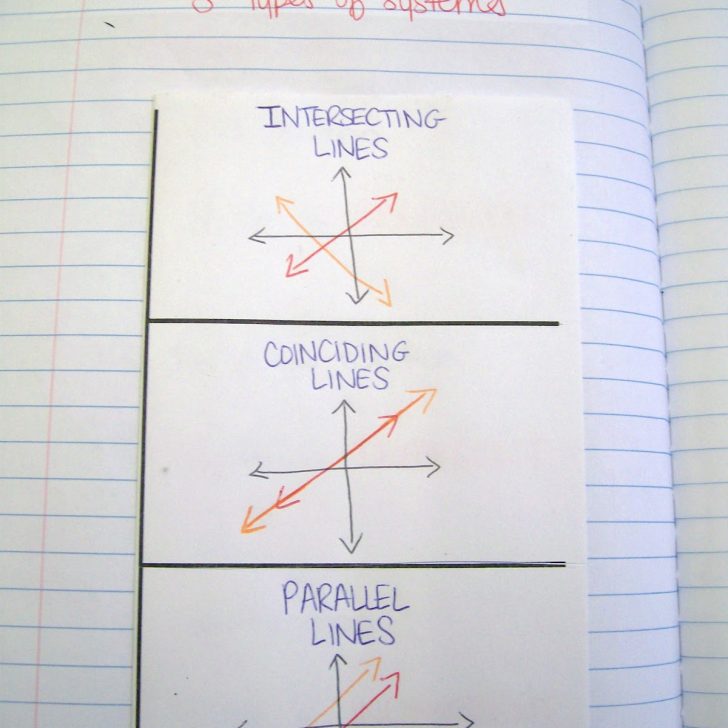 3 Types of Systems
INTERSECTING
LINES
COINCIDING
LINES
PARALLEL
LINES